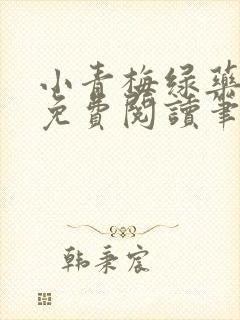 小青梅绿药
免費閱讀筆
韩秉宸